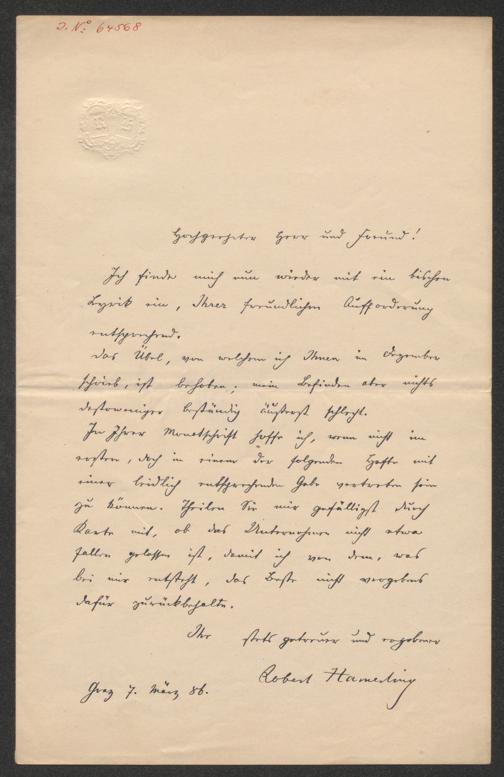 J. No: 64568
Hochgeehrter Herr und Freund!
Ich finde mich nun wieder mit ein bischen
Lyrik ein, Ihrer freundlichen Aufforderung
entsprechend.
Das Übel, von welchem ich Ihnen im Dezember
schrieb, ist behoben; mein Befinden aber nichts
destoweniger beständig äußerst schlecht.
In Ihrer Monatschrift hoffe ich, wenn nicht im
ersten, doch in einem der folgenden Hefte mit
einer leidlich entsprechenden Gabe vertreten sein
zu können. Theilen Sie mir gefälligst durch
Karte mit, ob das Unternehmen nicht etwa
fallen gelassen ist, damit ich von dem, was
bei mir entsteht, das Beste nicht vergebens
dafür zurückbehalte.
Ihr stets getreuer und ergebener
Robert Hamerling
Graz 7. März 86.